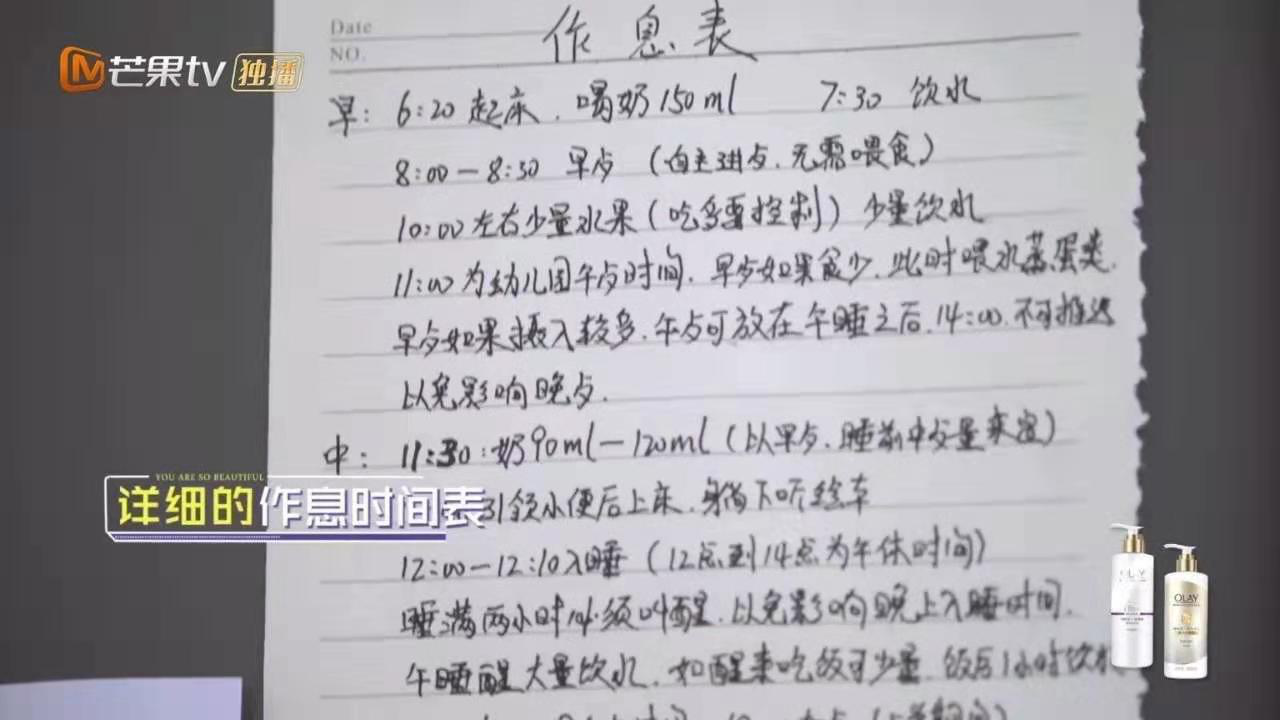 Date
NO.
作息表
芒果tv 独播
早: 6:20起床. 喝奶150ml 7:30 饮水
8:00-8:30 早歺 (自主进歺. 无需喂食)
10:00左右少量水果 (吃多要控制) 少量饮水
11:00为幼儿园午歺时间. 早歺如果食少. 此时喂水蒸蛋类.
早歺如果摄入较多. 午歺可放在午睡之后. 14:00. 不可推迟
以免影响晚歺.
中: 11:30: 奶90ml-120ml (以早歺. 睡前中歺量来定)
YOU ARE SO BEAUTIFUL
详细的作息时间表
小便后上床. 躺下听绘本
12:00-12:10入睡 (12点到14点为午休时间)
睡满两小时必须叫醒. 以免影响晚上入睡时间.
午睡醒大量饮水. 如醒来吃饭可少量. 饭后1小时饮水
OLAY
OLAY